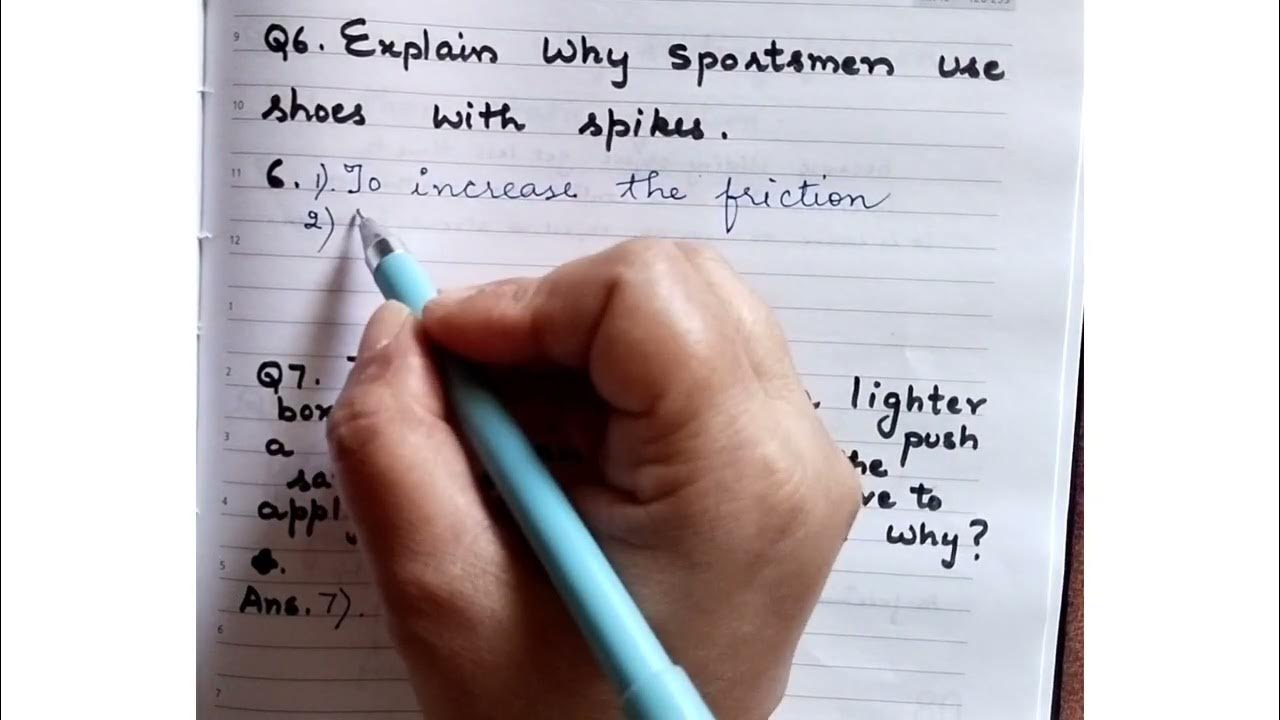 9
Q6. Explain why sportsmen use
10
shoes with spikes.
11
6. 1). To increase the friction
2)
12
1
2
Q7. lighter
push
3
a
4
to
appl why?
5
6
Ans. 7).
7